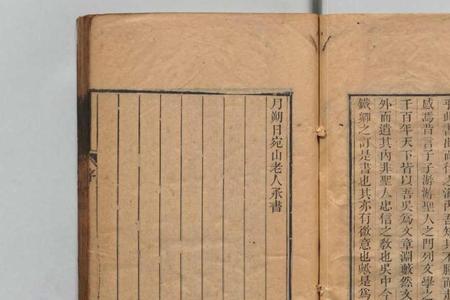 感焉昔言子子游游聖人之門列文學之
千百年天下皆以吾吳為文章淵藪然文
外而遺其內非聖人忠信之教也吳中今
鐵卿之訂是書也其亦有微意也歟是爲
月朔日宛山老人承書
序